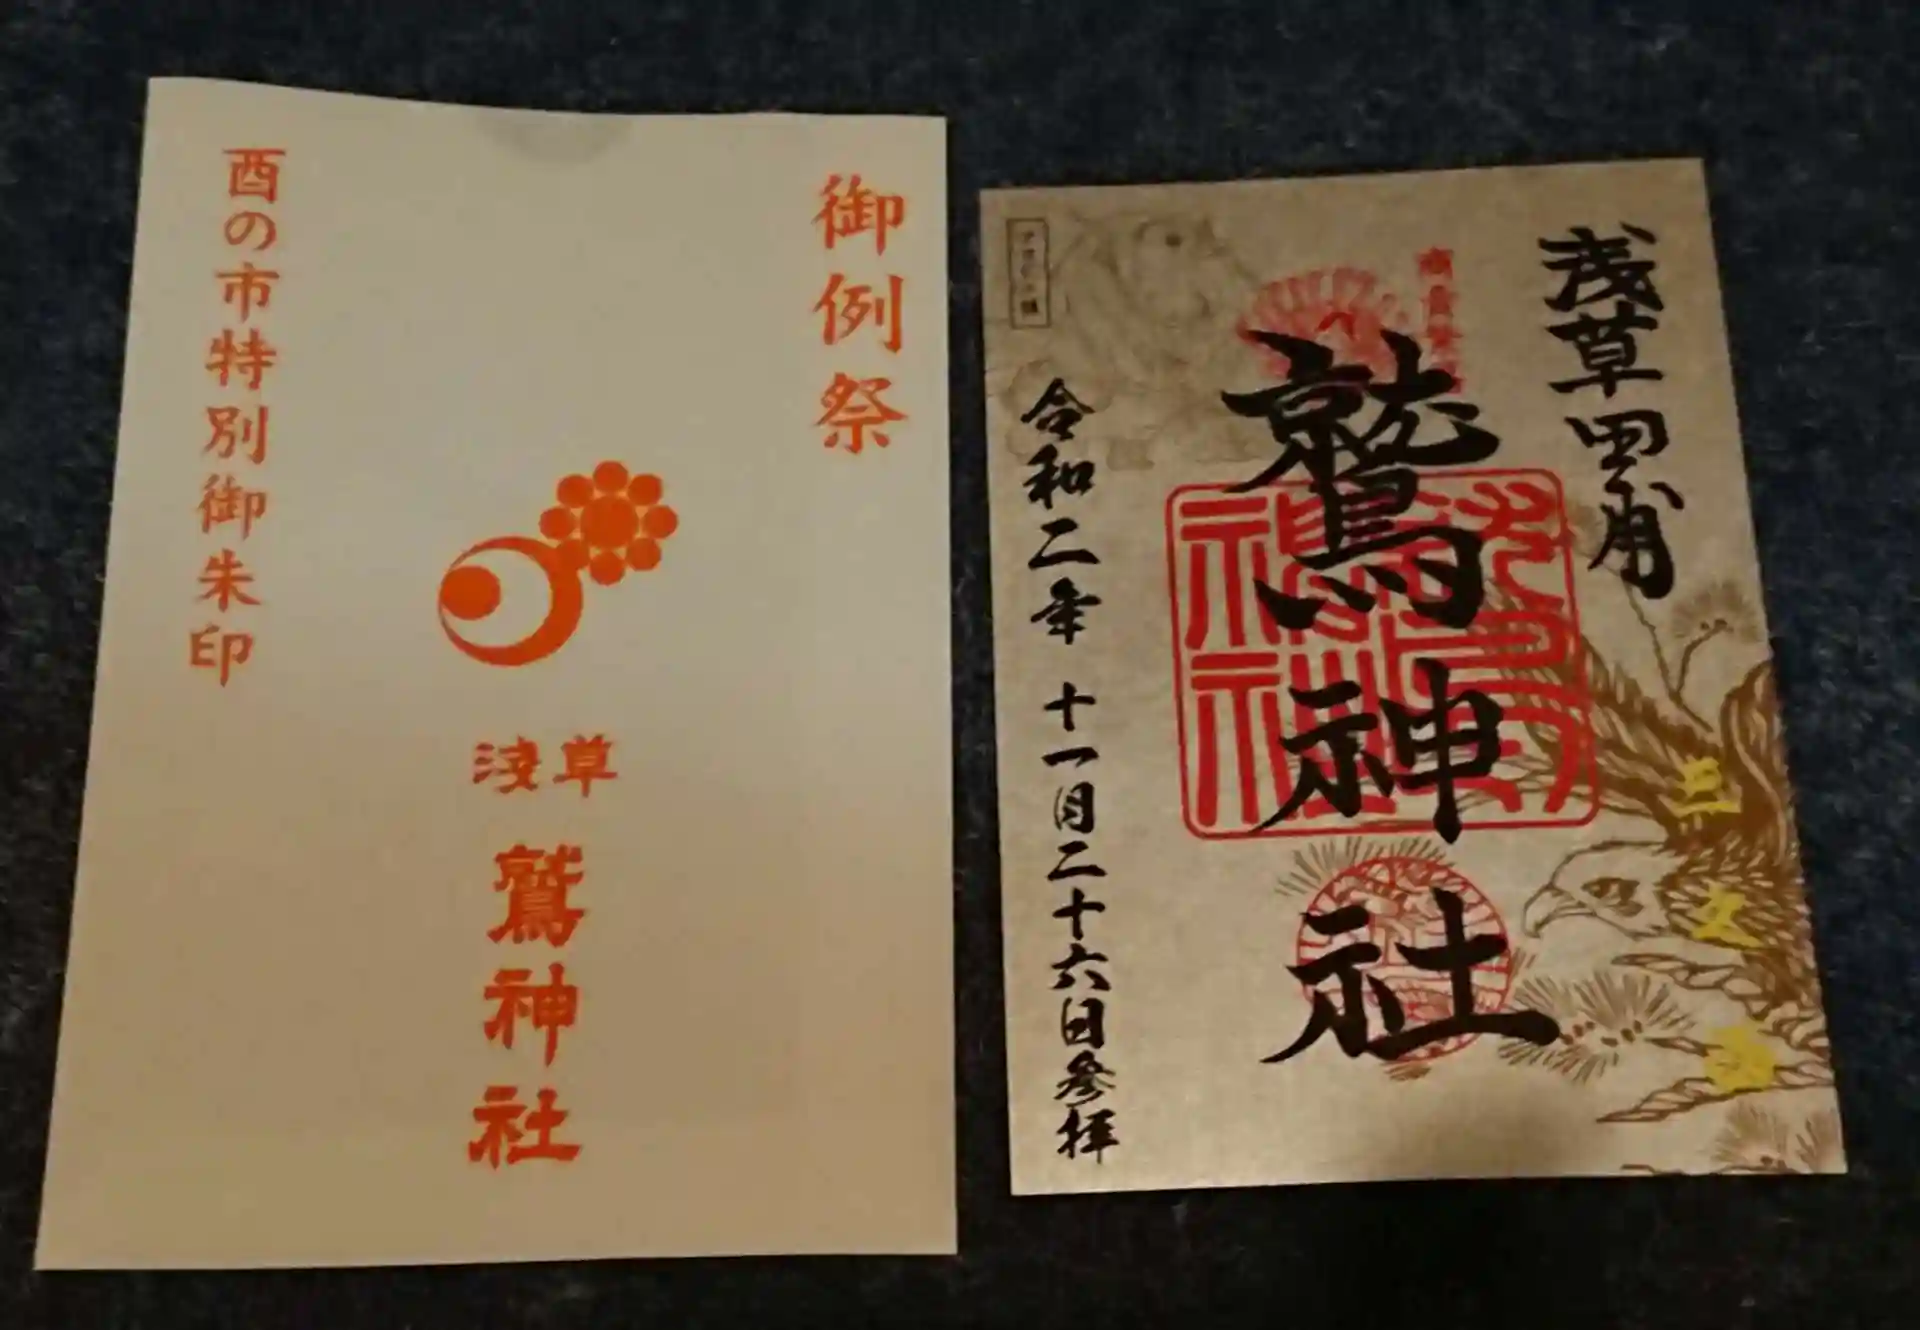 御例祭
酉の市特別御朱印
淺草
鷲神社
浅草田甫
鷲神社
令和二年 十一月二十六日参拝
三之酉